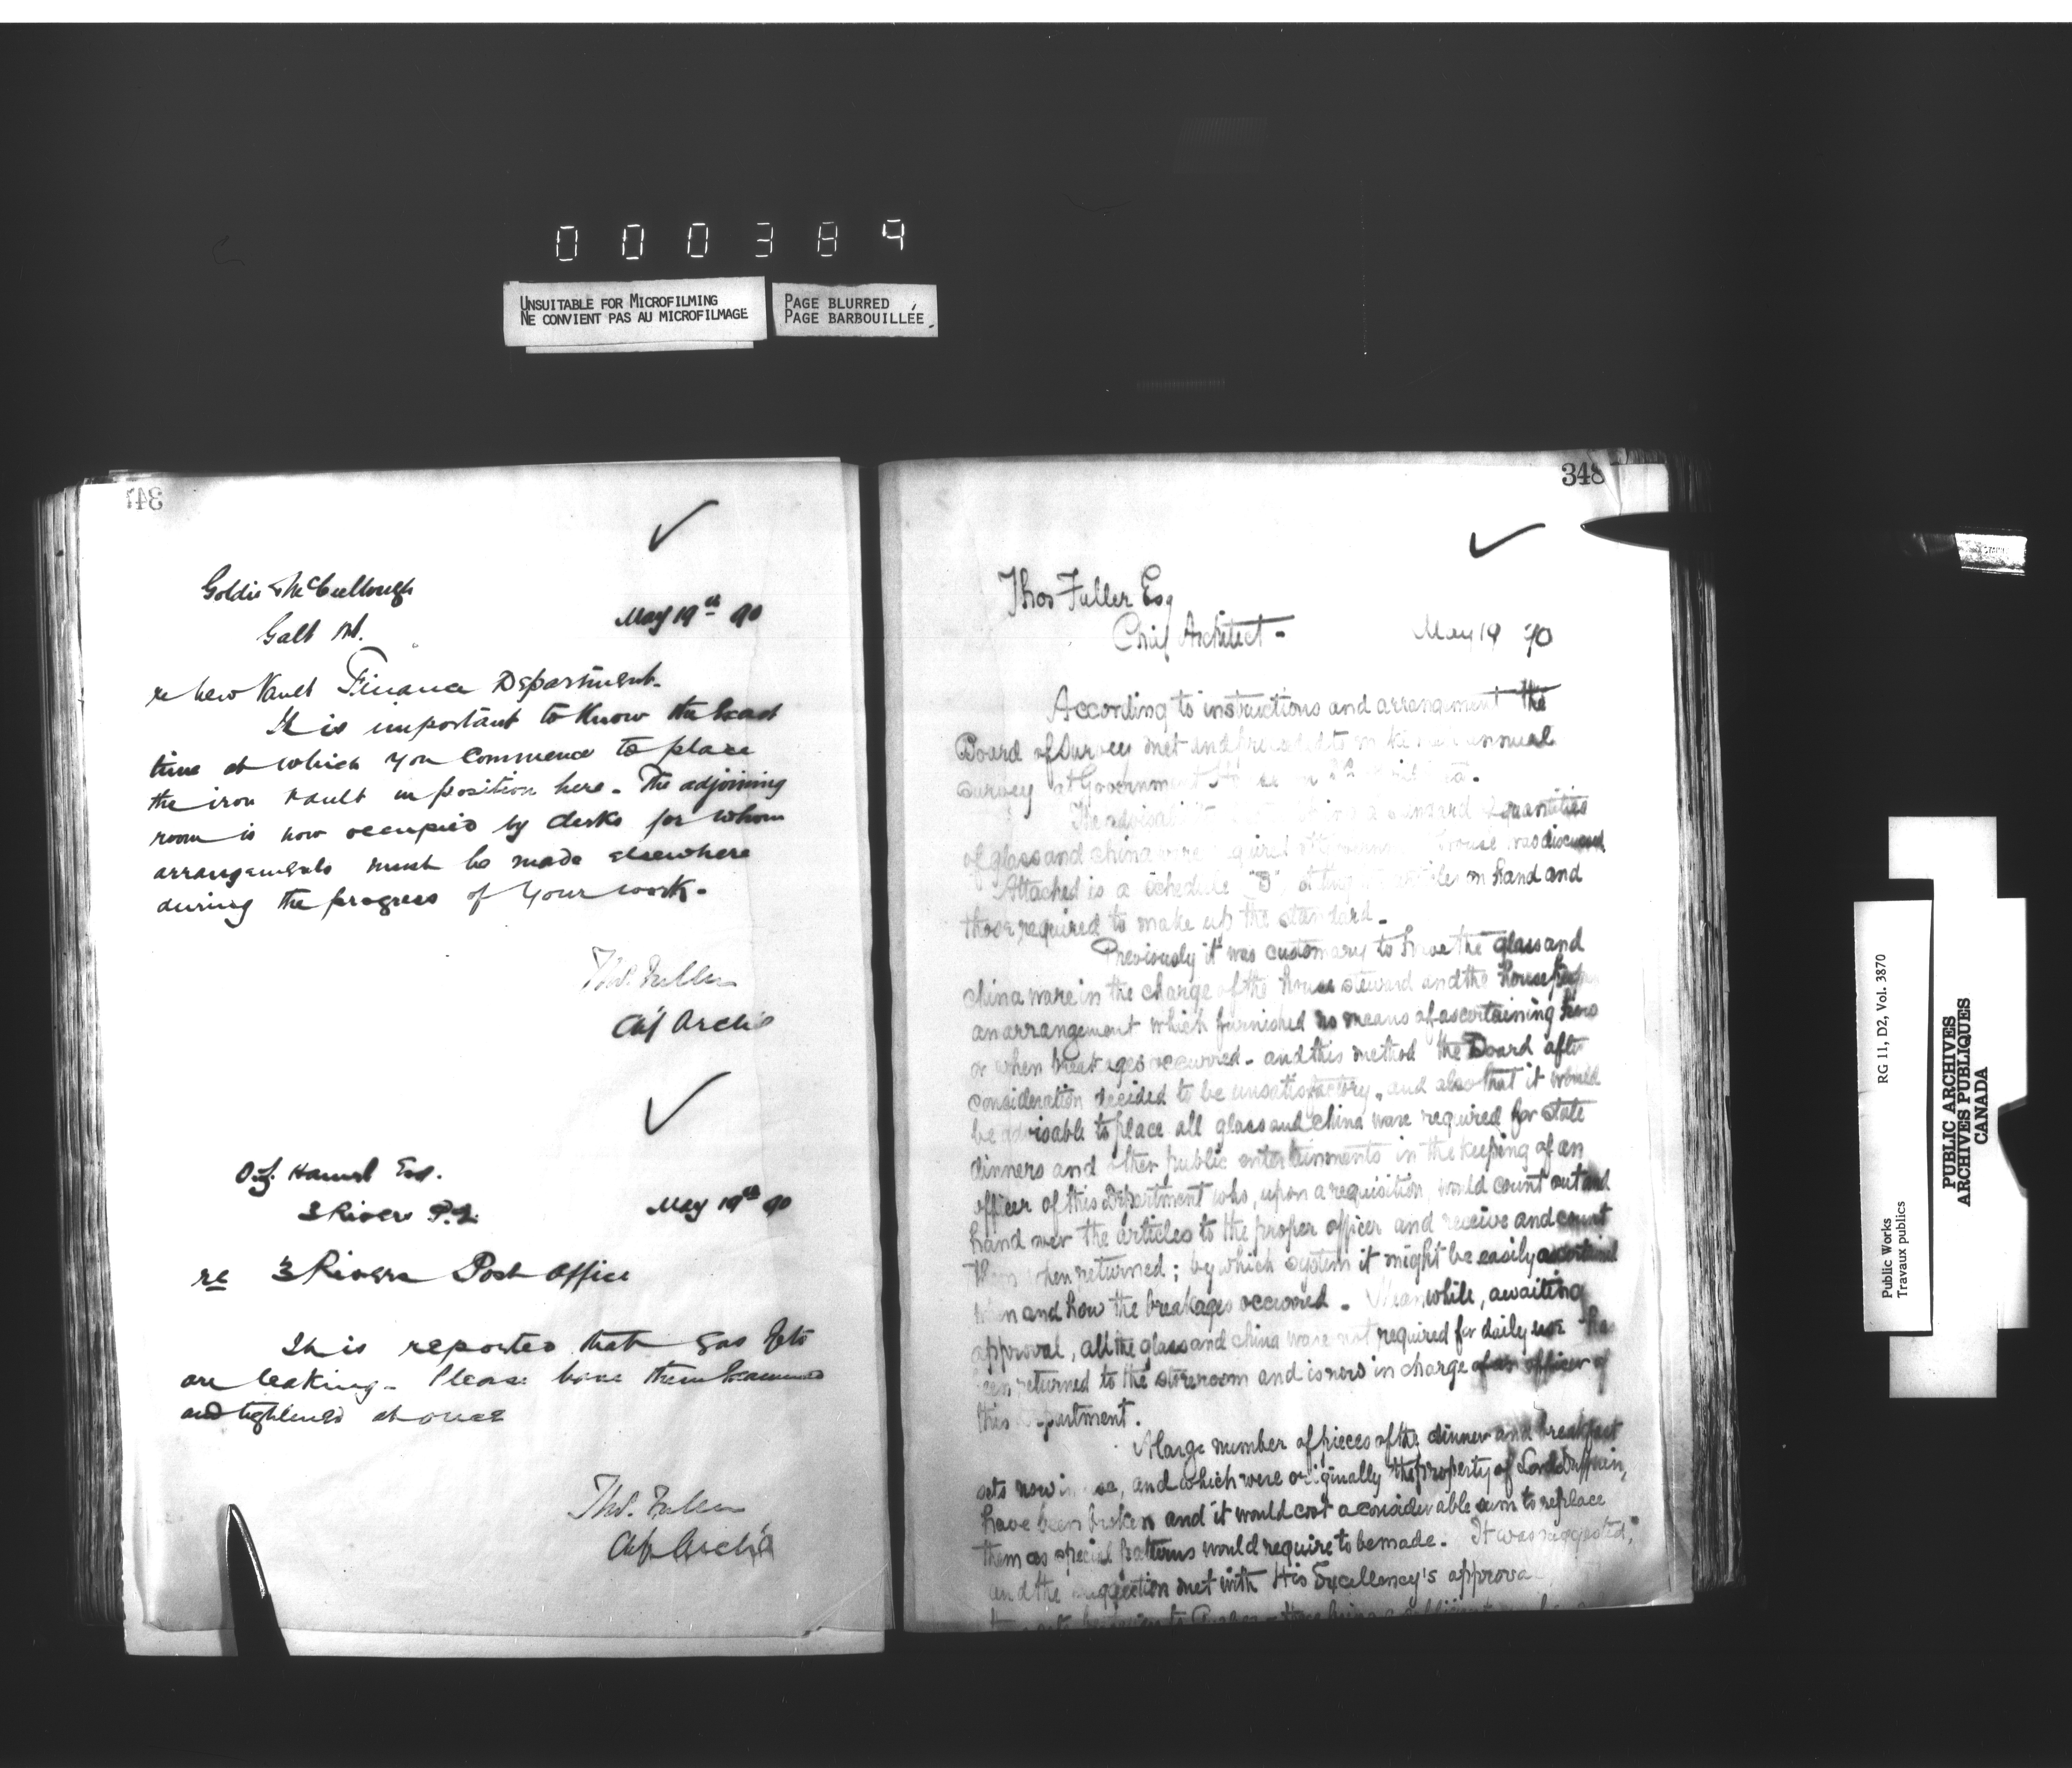 000389
UNSUITABLE FOR MICROFILMING
NE CONVIENT PAS AU MICROFILMAGE
PAGE BLURRED
PAGE BARBOUILLÉE
347
Goldie & McCullough
Galt Ont.
May 19th 90
re New Vault Finance Department.
It is important to know the Exact
time at which you commence to place
the iron vault in position here. The adjoining
room is now occupied by clerks for whom
arrangements must be made elsewhere
during the progress of your work.
Thos. Fuller
Chf Archt
Hamel Esq.
3 Rivers P.Q.
May 19th 90
re 3 Rivers Post Office
It is reported that gas jets
are leaking. Please have them Examined
and tightened at once
Thos. Fuller
Chf Archt
348
Thos Fuller Esq
Chief Architect -
May 19 90
According to instructions and arrangement the
Board of Survey met and proceeded to annual
survey at Government
The advisability standard quantities
of glass and china ware required at House was discussed
Attached is a schedule "B" on hand and
those required to make up the standard -
Previously it was customary to have the glass and
china ware in the charge of the house steward and the housekeeper
an arrangement which furnished no means of ascertaining how
or when breakages occurred - and this method the Board after
consideration decided to be unsatisfactory, and also that it would
be advisable to place all glass and china ware required for state
dinners and other public entertainments in the keeping of an
officer of this Department who, upon a requisition, would count out and
hand over the articles to the proper officer and receive and count
them when returned; by which system it might be easily ascertained
when and how the breakages occurred - Meanwhile, awaiting
approval, all the glass and china ware not required for daily use has
been returned to the storeroom and is now in charge of an officer of
this Department.
A large number of pieces of the dinner and breakfast
sets now in use, and which were originally the property of Lord Dufferin,
have been broken and it would cost a considerable sum to replace
them as special patterns would require to be made. It was suggested,
and the suggestion met with His Excellency's approval
RG 11, D2, Vol. 3870
Public Works
Travaux publics
PUBLIC ARCHIVES
ARCHIVES PUBLIQUES
CANADA